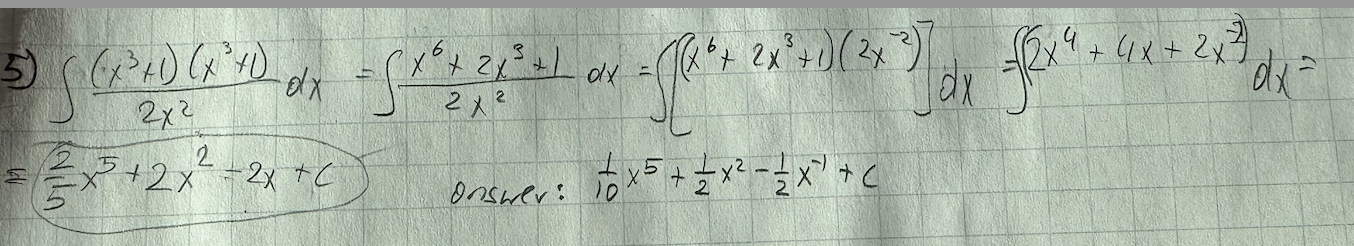 5) ∫ (x³+1)(x³+1)/2x² dx = ∫ x⁶+2x³+1/2x² dx = ∫[(x⁶+2x³+1)(2x⁻²)]dx = ∫(2x⁴+4x+2x⁻²)dx =
= 2/5 x⁵+2x²-2x+C answer: 1/10 x⁵+1/2 x²-1/2 x⁻¹+C